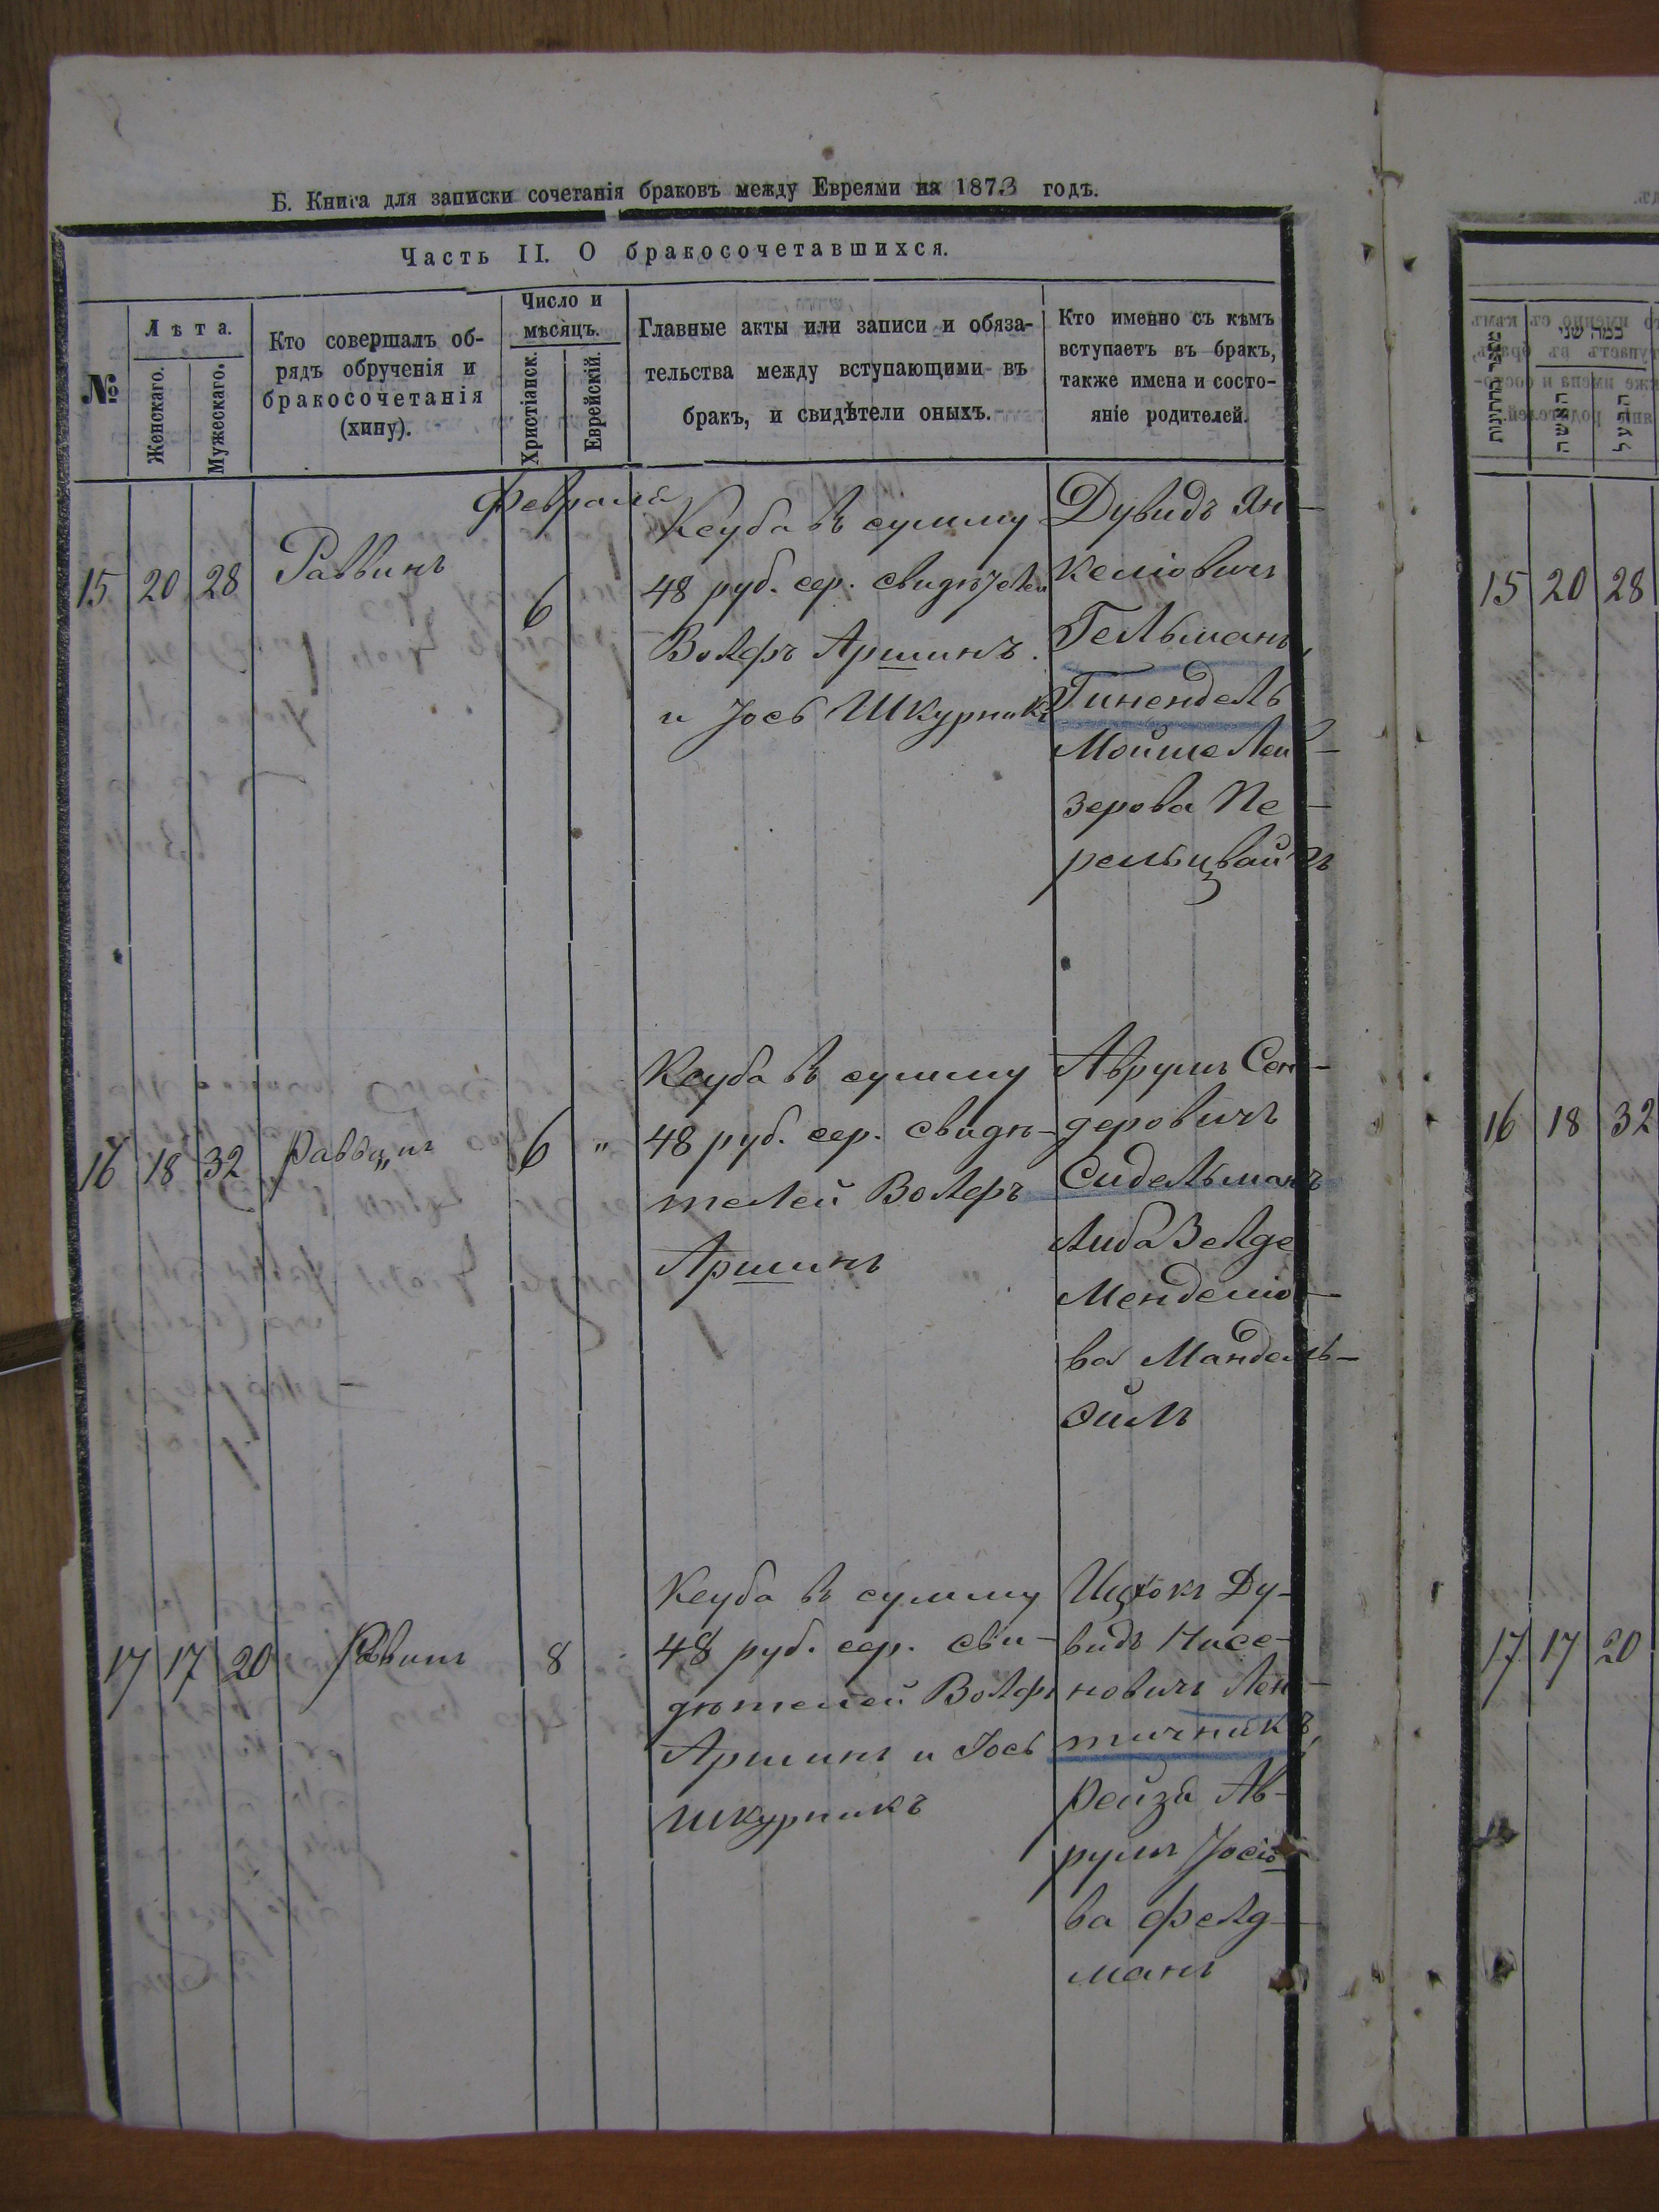 Б. Книга для записки сочетанія браковъ между Евреями на 1873 годъ.
Часть II. О бракосочетавшихся.
№
Лѣта.
Женскаго.
Мужескаго.
Кто совершалъ об-
рядъ обрученія и
бракосочетанія
(хину).
Число и
мѣсяцъ.
Христіанск.
Еврейскій.
Главные акты или записи и обяза-
тельства между вступающими въ
бракъ, и свидѣтели оныхъ.
Кто именно съ кѣмъ
вступаетъ въ бракъ,
также имена и состо-
яніе родителей.
Февраля
15 20 28 Раввинъ 6
Ксуба въ сумму
48 руб. сер. свидѣтели
Волфъ Аршинъ
и Іось Шкурникъ
Дувидъ Ян-
келіовичъ
Гельманъ,
Гинендель
Мойше Лей-
зерова Пе-
рельцвайгъ
16 18 32 Раввинъ 6 "
Ксуба въ сумму
48 руб. сер. свидѣ-
телей Волфъ
Аршинъ
Аврумъ Сен-
деровичъ
Сидельманъ
Либа Зелде
Менделіо-
ва Мандель-
Эйль
17 17 20 Раввинъ 8
Ксуба въ сумму
48 руб. сер. сви-
дѣтелей Волфъ
Аршинъ и Іось
Шкурникъ
Ицхокъ Ду-
видъ Нисе-
новичъ Лек-
тичникъ,
Рейза Ав-
румъ Іосіо-
ва Фелд-
манъ
מספר החתונות
כמה שני
האשה
הבעל
15 20 28
16 18 32
17 17 20